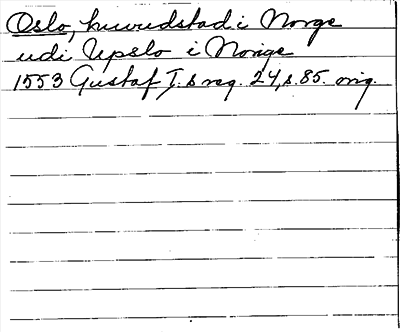 Oslo, huvudstad i Norge
udi Upslo i Norige
1553 Gustaf I:s reg. 24, s. 85. orig.